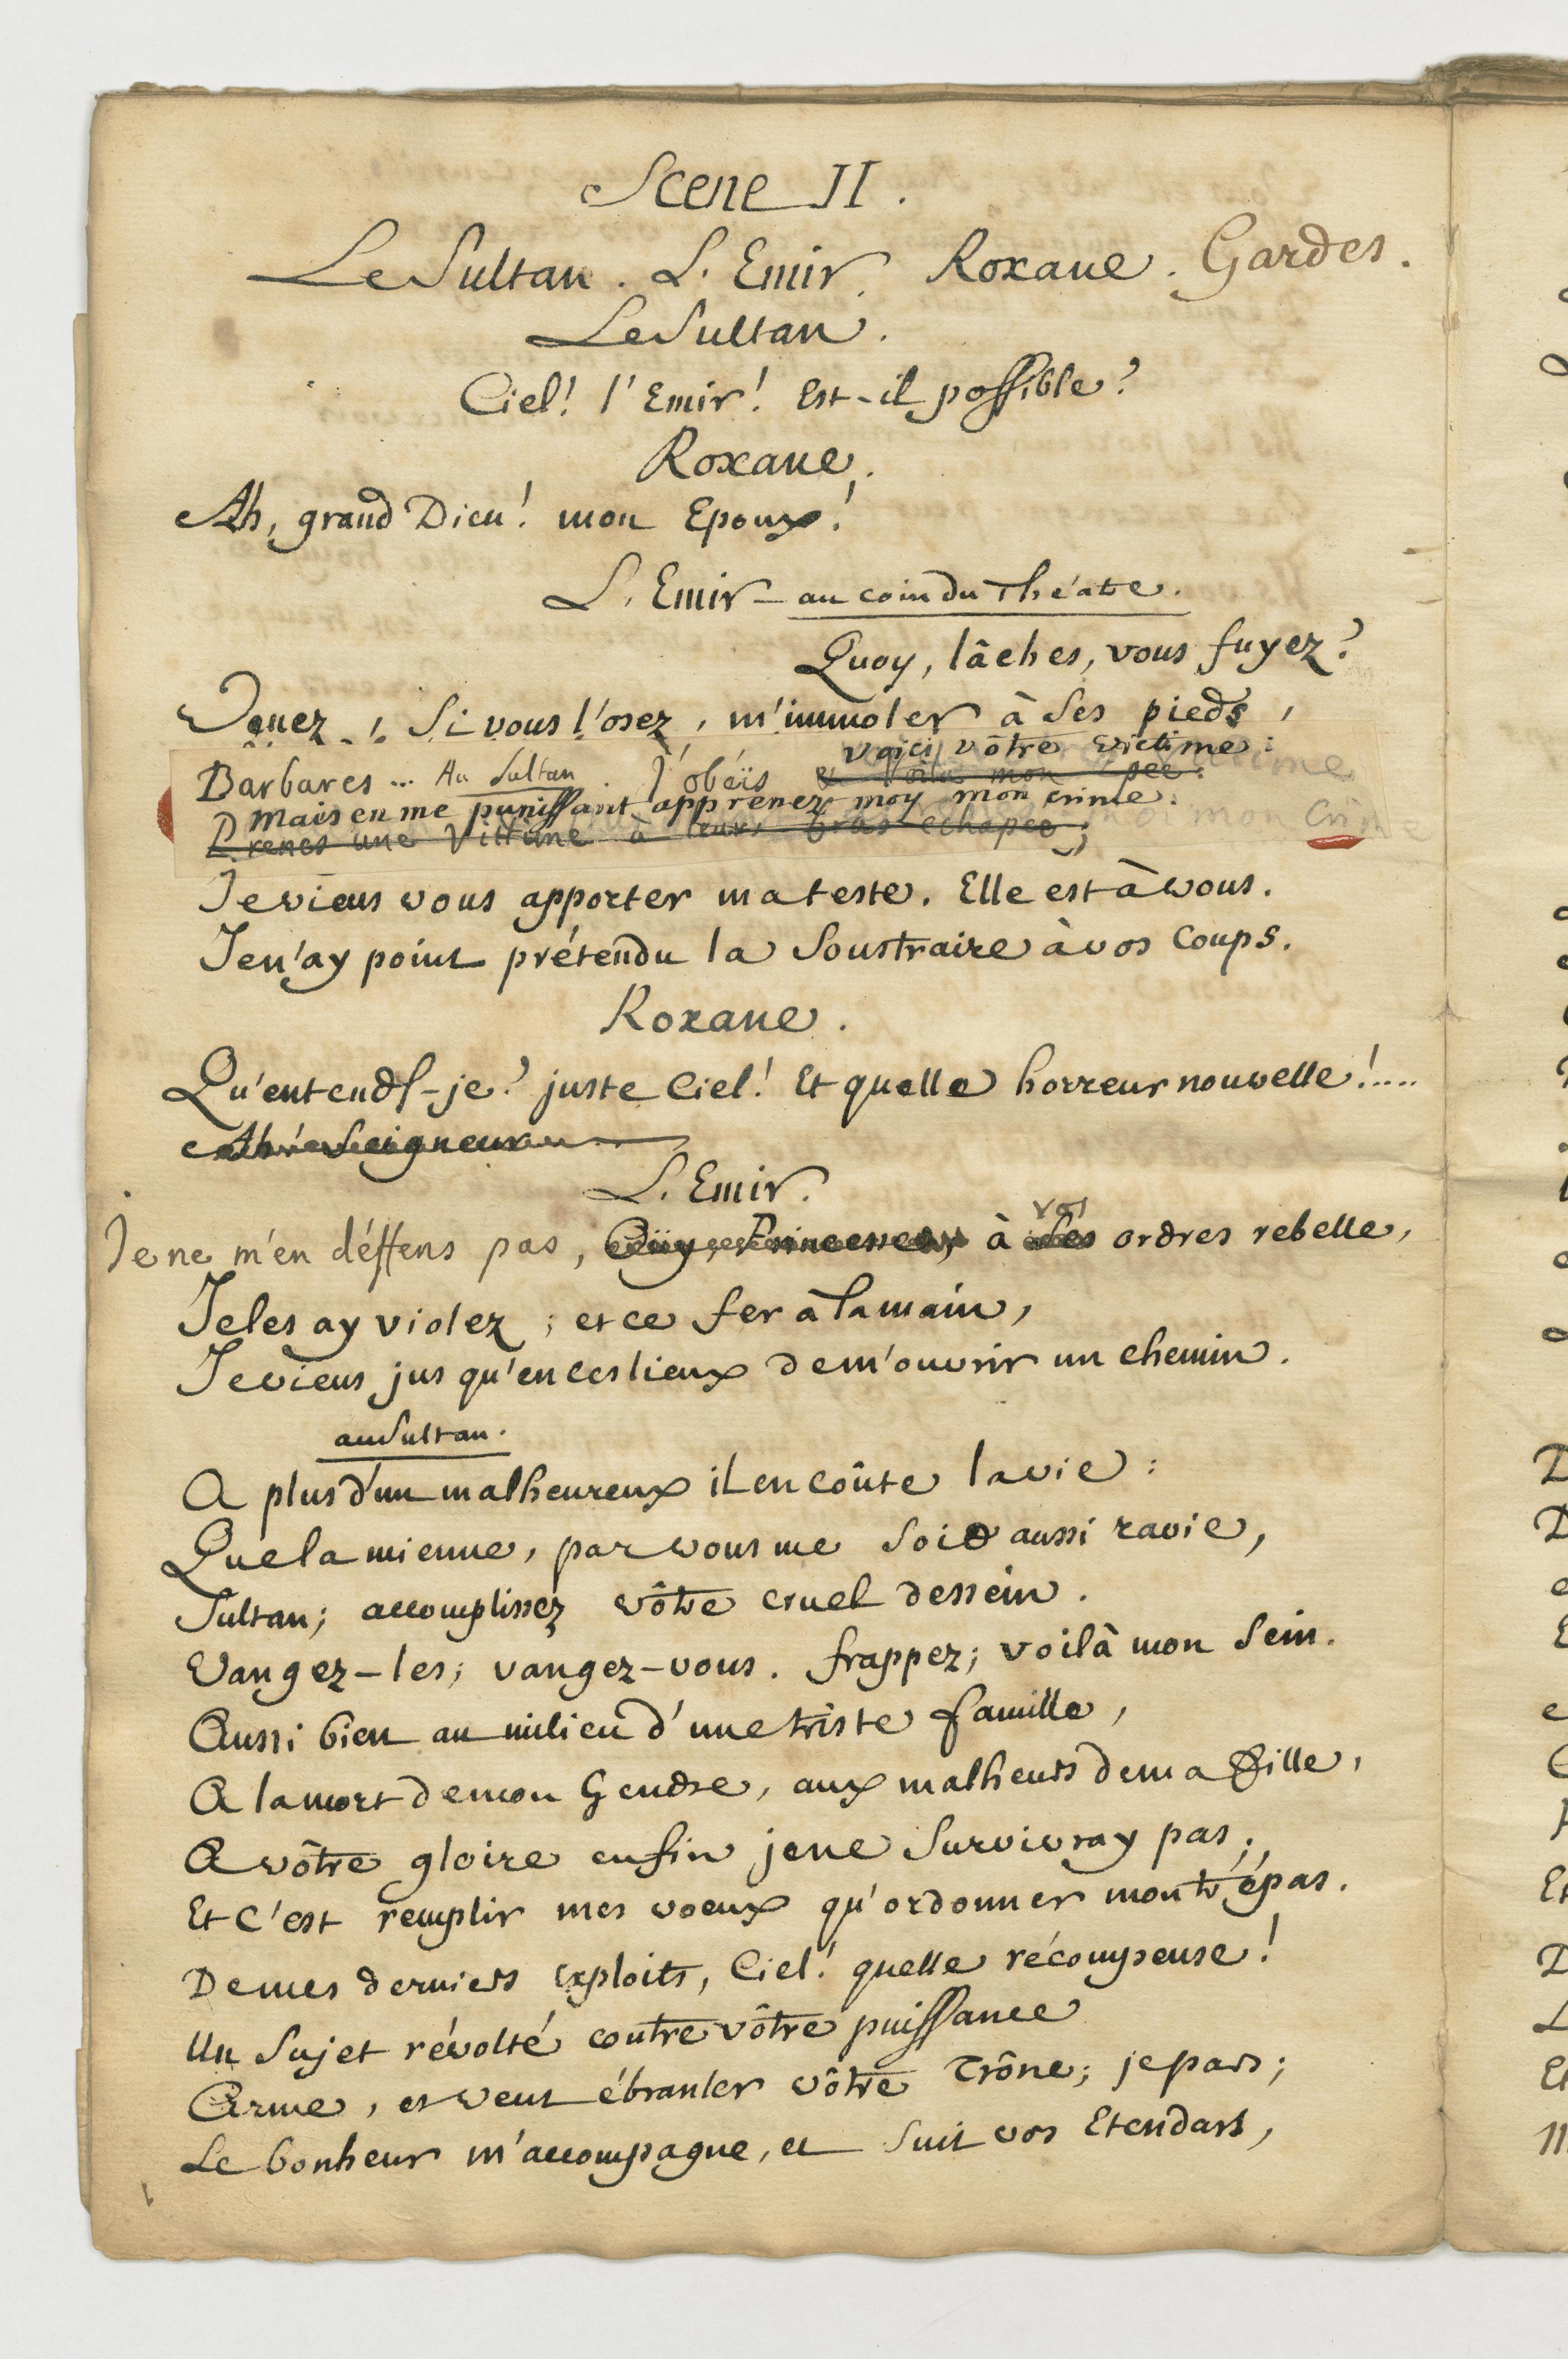 Scene II.
Le Sultan. L'Emir. Roxane. Gardes.
Le Sultan.
Ciel! l'Emir! Est-il possible?
Roxane.
Ah, grand Dieu! mon Epoux!
L'Emir - au coin du Théatre.
Quoy, lâches, vous fuyez?
Venez, si vous l'osez, m'immoler à ses pieds,
voicy vôtre victime:
Barbares... Au Sultan. J'obéis et voila mon épée:
Mais en me punissant apprenez moy mon crime.
Prenes une Victime à leurs bras echapée;
Je viens vous apporter ma teste. Elle est à vous.
Je n'ay point prétendu la soustraire à vos coups.
Roxane.
Qu'entends-je? juste Ciel! Et quelle horreur nouvelle!....
Ah! Seigneur
L'Emir.
vos
Je ne m'en déffens pas, Oüy, Princesse, à ses ordres rebelle,
Je les ay violez; et ce fer à la main,
Je viens jusqu'en ces lieux de m'ouvrir un chemin.
au Sultan.
A plus d'un malheureux il en coûte la vie:
Que la mienne, par vous me soit aussi ravie,
Sultan; accomplissez vôtre cruel dessein.
Vangez-les; vangez-vous. frappez; voilà mon sein.
Aussi bien au milieu d'une triste famille,
A la mort de mon Gendre, aux malheurs de ma fille,
A vôtre gloire enfin je ne survivray pas;
Et c'est remplir mes voeux qu'ordonner mon trépas.
De mes derniers exploits, Ciel! quelle récompense!
Un sujet révolté contre vôtre puissance
Arme, et veut ébranler vôtre Trône; je pars;
Le bonheur m'accompagne, et suit vos Etendars,